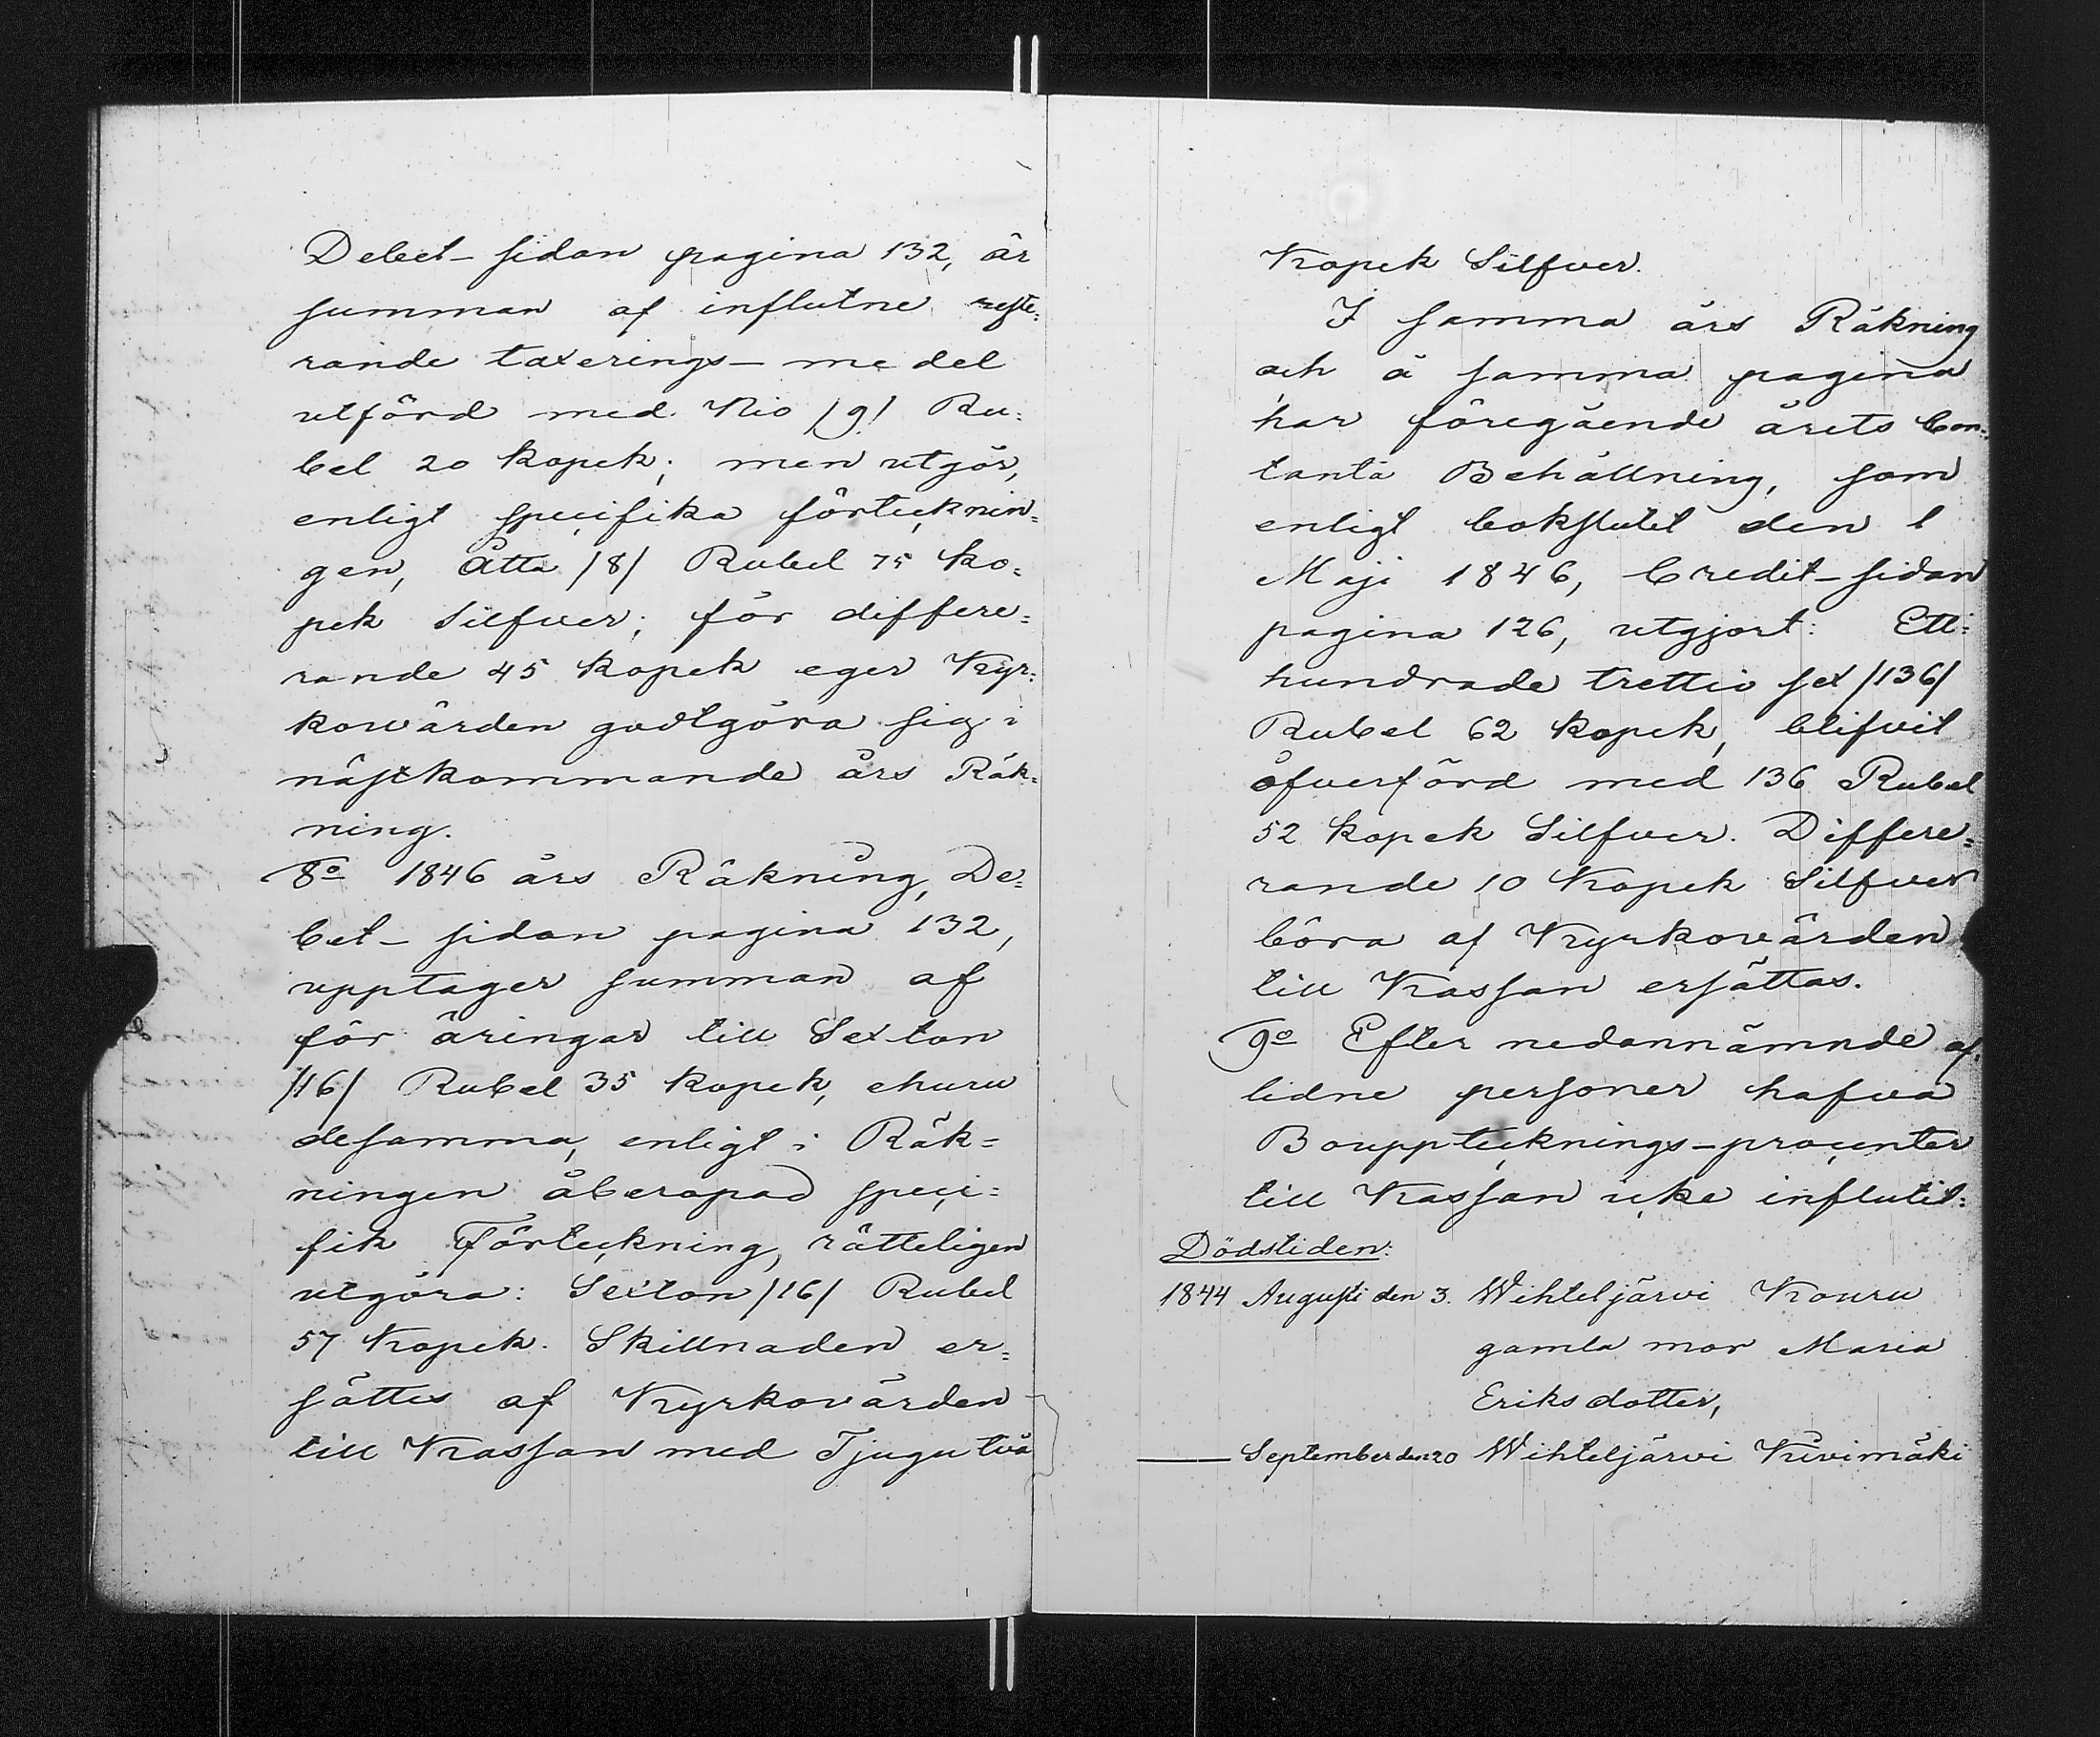 Debet- sidan pagina 132, är
summan af influtne reste=
rande taxerings- medel
utförd med Nio /9/ Ru=
bel 20 kopek; men utgör,
enligt specifika förtecknin=
gen, Åtta /8/ Rubel 75 ko=
pek Silfver; för differe=
rande 45 kopek eger Kyr=
kovärden godtgöra sig i
nästkommande års Räk=
ning.
8o 1846 års Räkning, De=
bet- sidan pagina 132,
upptager summan af
för åringar till Sexton
/16/ Rubel 35 kopek, ehuru
desamma, enligt i Räk=
ningen åberopad speci=
fik Förteckning, rätteligen
utgöra: Sexton /16/ Rubel
57 Kopek. Skillnaden er=
sättes af Kyrkovärden
till Kassan med Tjugutvå
Kopek Silfver.
I samma års Räkning
och å samma pagina
har föregående årets Con=
tanta Behållning, som
enligt bokslutet den 1
Maji 1846, Credit- sidan
pagina 126, utgjort: Ett=
hundrade trettio sex /136/
Rubel 62 kopek, blifvit
öfverförd med 136 Rubel
52 kopek Silfver. Differe=
rande 10 Kopek Silfver
böra af Kyrkovärden
till Kassan ersättas.
9o Efter nedannämnde af=
lidne personer hafva
Boupptecknings- procenter
till Kassan icke influtit:
Dödstiden:
1844 Augusti den 3. Wihteljärvi Kouru
gamla mor Maria
Eriksdotter,
—— September den 20 Wihteljärvi Kivimäki